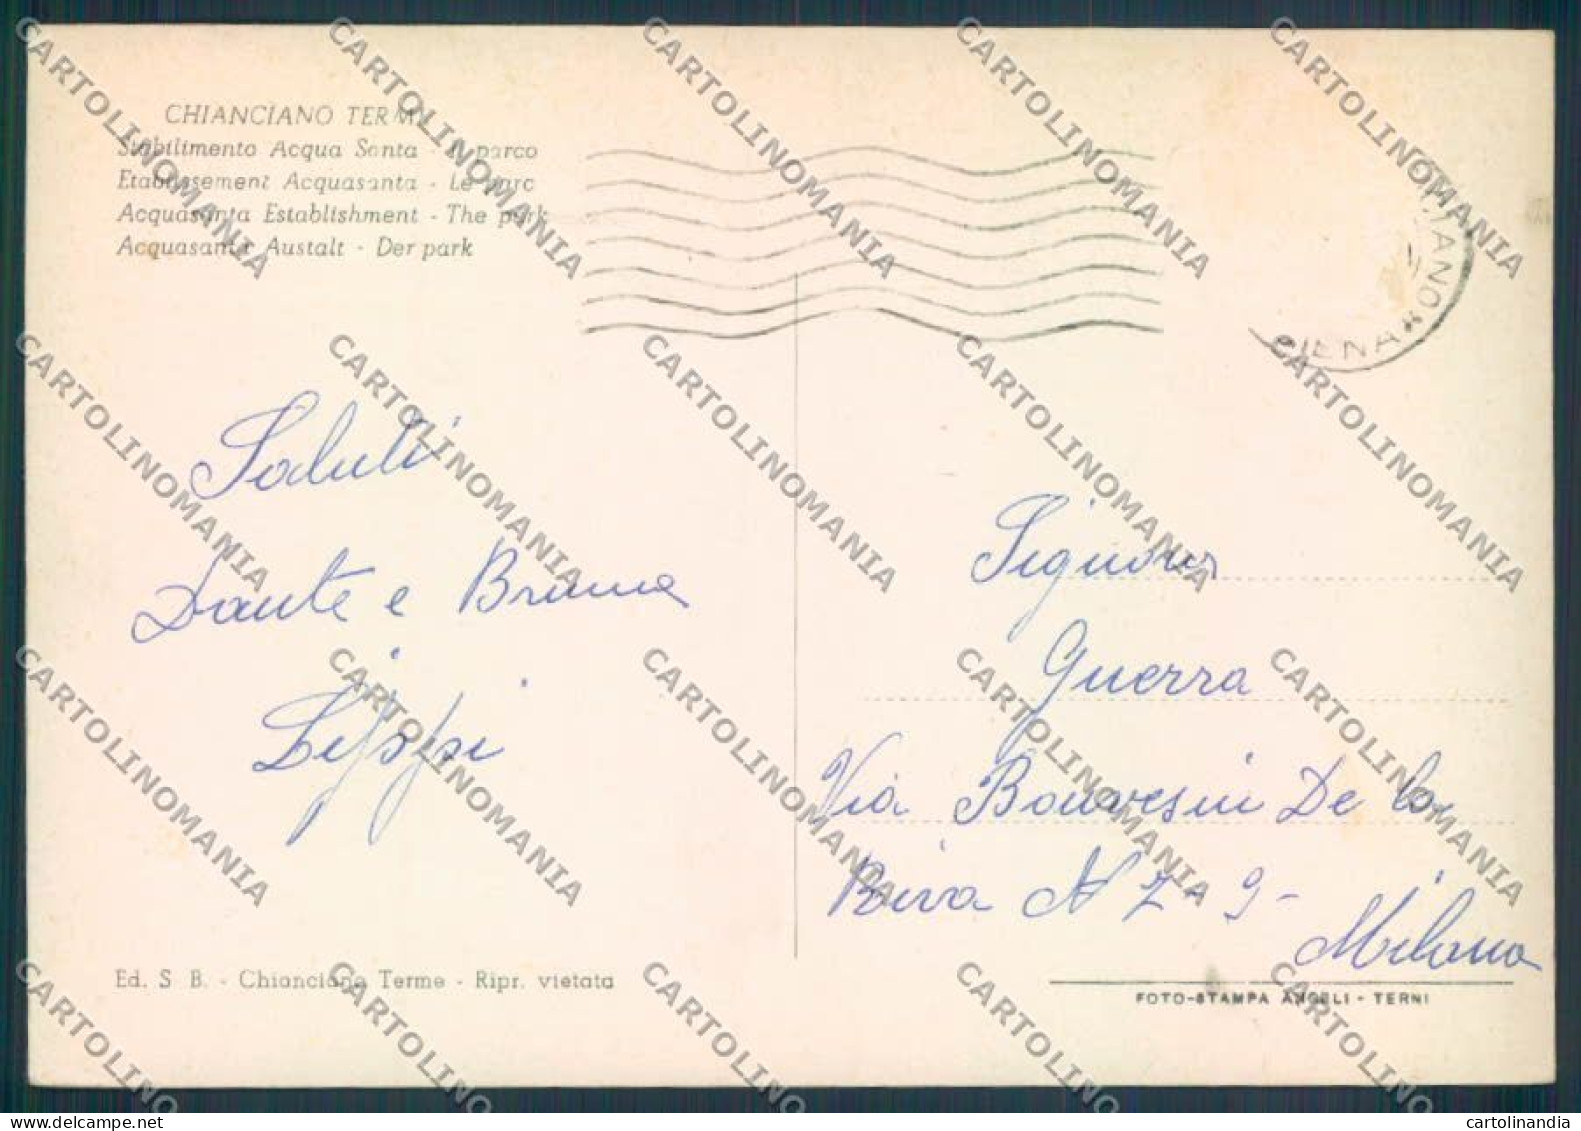 CHIANCIANO TERME
Stabilimento Acqua Santa - Il parco
Etablissement Acquasanta - Le parc
Acquasanta Establishment - The park
Acquasanta Austalt - Der park
SIENA
Saluti
Dante e Bruna
Lippi
Signora
Guerra
Via Bonvesin De la
Riva N 7-9-
Milano
Ed. S B. - Chianciano Terme - Ripr. vietata
FOTO-STAMPA ANGELI - TERNI
CARTOLINOMANIA
delcampe.net
cartolinandia